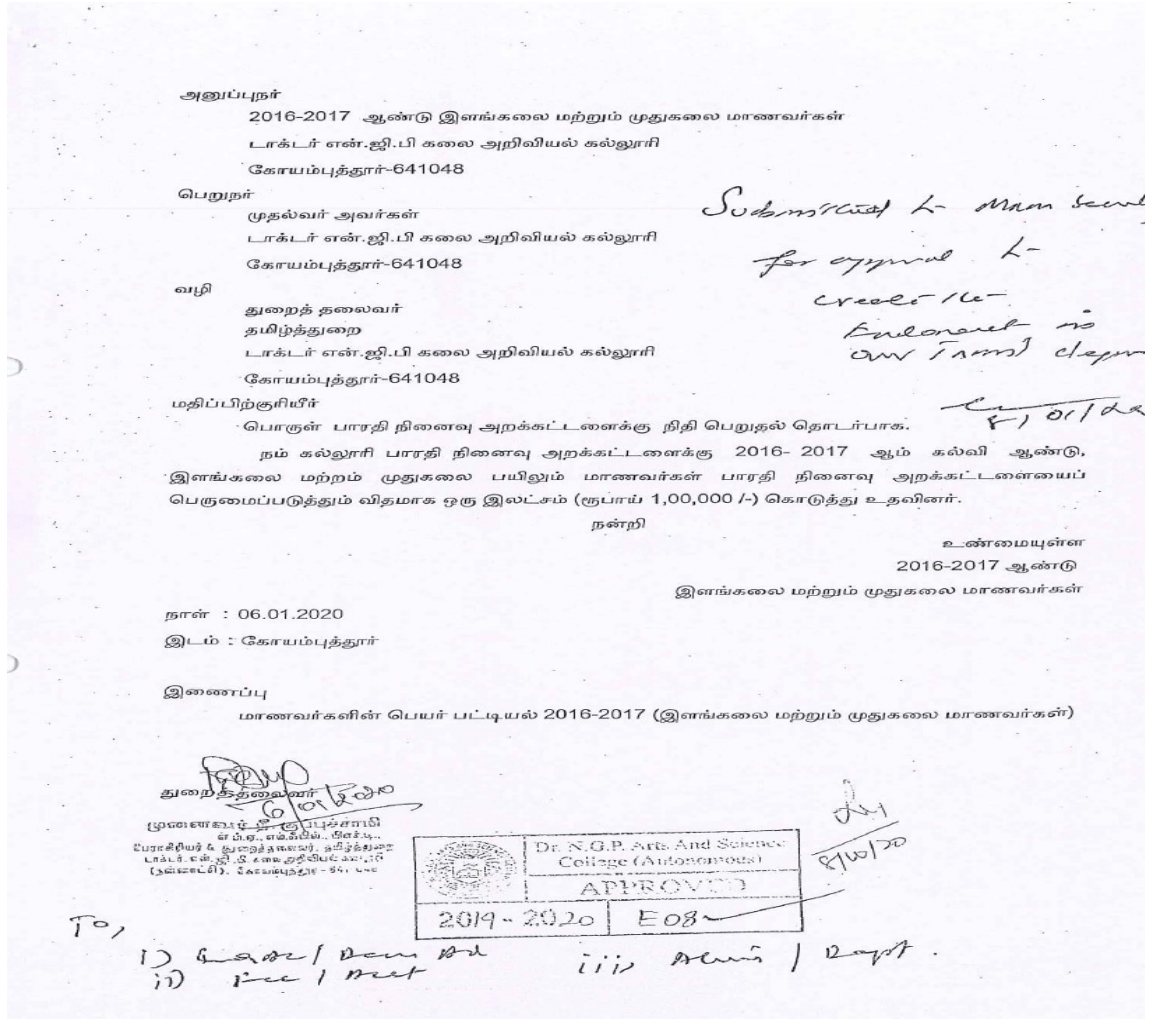 அனுப்புநர்
2016-2017 ஆண்டு இளங்கலை மற்றும் முதுகலை மாணவர்கள்
டாக்டர் என்.ஜி.பி கலை அறிவியல் கல்லூரி
கோயம்புத்தூர்-641048
பெறுநர்
முதல்வர் அவர்கள்
டாக்டர் என்.ஜி.பி கலை அறிவியல் கல்லூரி
கோயம்புத்தூர்-641048
வழி
துறைத் தலைவர்
தமிழ்த்துறை
டாக்டர் என்.ஜி.பி கலை அறிவியல் கல்லூரி
கோயம்புத்தூர்-641048
for
8/01/20
மதிப்பிற்குரியீர்
பொருள் பாரதி நினைவு அறக்கட்டளைக்கு நிதி பெறுதல் தொடர்பாக.
நம் கல்லூரி பாரதி நினைவு அறக்கட்டளைக்கு 2016- 2017 ஆம் கல்வி ஆண்டு,
இளங்கலை மற்றம் முதுகலை பயிலும் மாணவர்கள் பாரதி நினைவு அறக்கட்டளையைப்
பெருமைப்படுத்தும் விதமாக ஒரு இலட்சம் (ரூபாய் 1,00,000 /-) கொடுத்து உதவினர்.
நன்றி
உண்மையுள்ள
2016-2017 ஆண்டு
இளங்கலை மற்றும் முதுகலை மாணவர்கள்
நாள் : 06.01.2020
இடம் : கோயம்புத்தூர்
இணைப்பு
மாணவர்களின் பெயர் பட்டியல் 2016-2017 (இளங்கலை மற்றும் முதுகலை மாணவர்கள்)
துறைத்தலைவர்
6/01/2020
எம்.ஏ., எம்.ஃபில்., பிஎச்.டி.,
பேராசிரியர் & துறைத்தலைவர், தமிழ்த்துறை
Dr. N.G.P. Arts And Science
College (Autonomous)
APPROVED
2019-2020 E08
To,
i)
ii)
iii) / Dept.